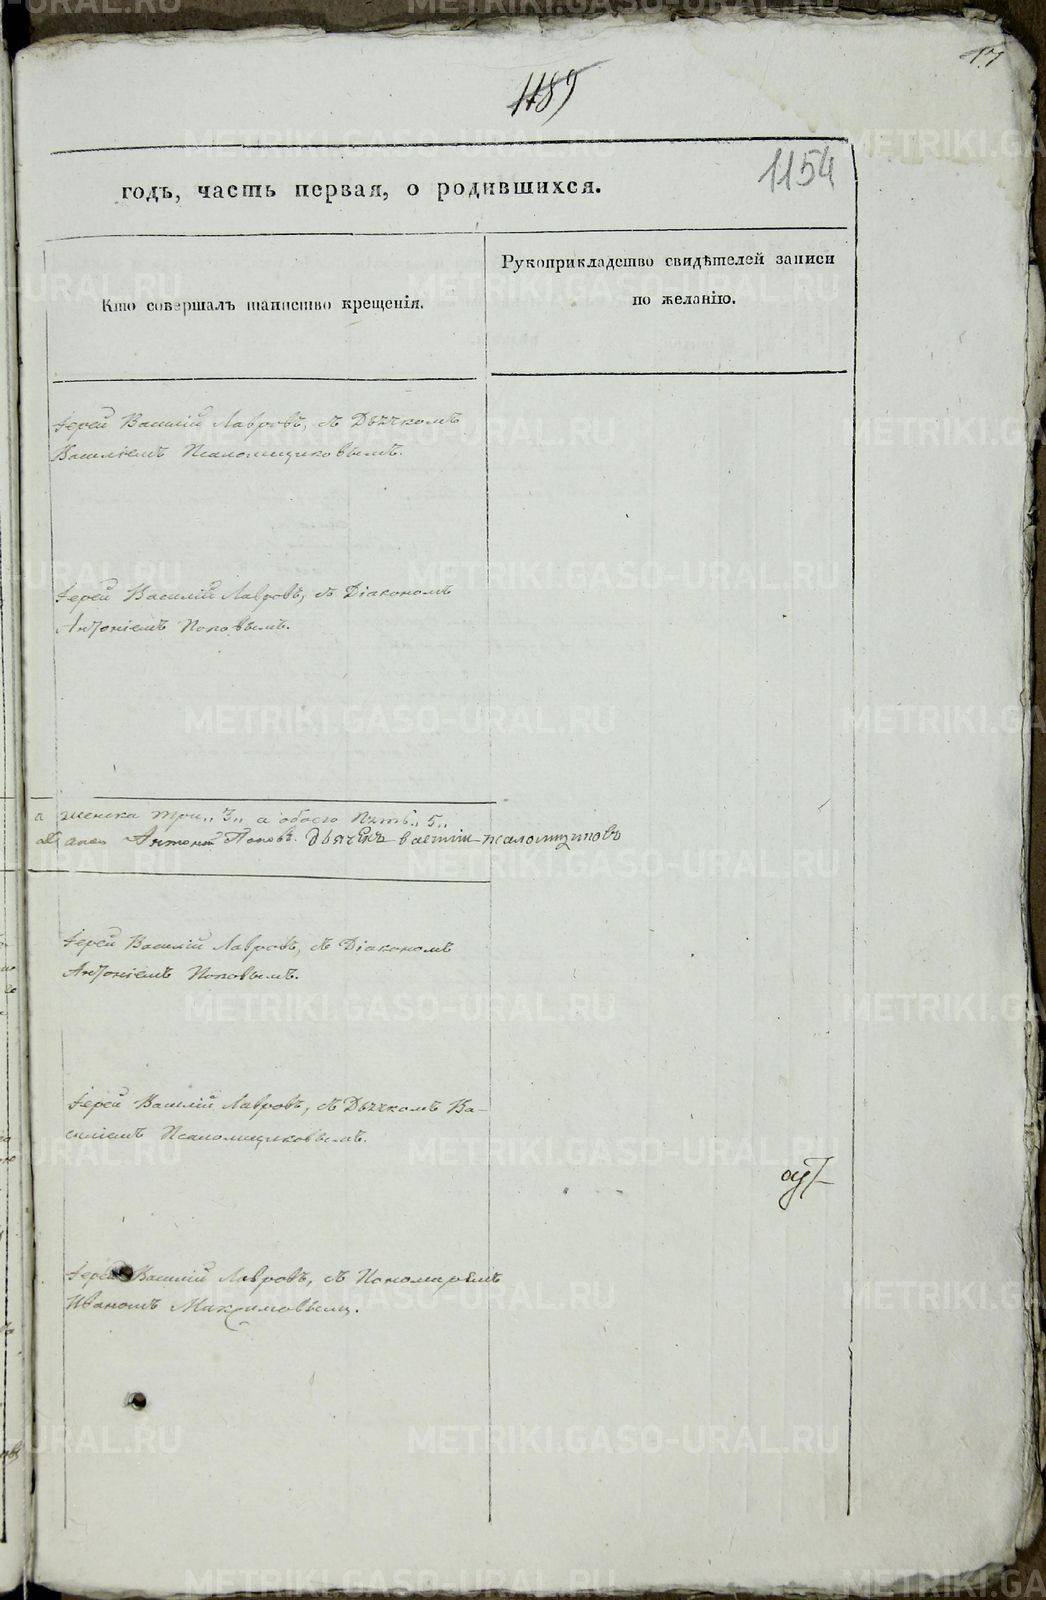 17
1189
1154
годъ, часть первая, о родившихся.
Кто совершалъ таинство крещенія.
Рукоприкладство свидѣтелей записи
по желанію.
Іерей Василій Лавровъ, съ Дьячкомъ
Василіемъ Псаломщиковымъ.
Іерей Василій Лавровъ, съ Діакономъ
Антоніемъ Поповымъ.
а женска три „3„ а обоего пять „5„
Антоній Поповъ. Дьячекъ
Іерей Василій Лавровъ, съ Діакономъ
Антоніемъ Поповымъ.
Іерей Василій Лавровъ, съ Дьячкомъ Ва-
силіемъ Псаломщиковымъ.
Іерей Василій Лавровъ, съ Пономаремъ
Иваномъ Максимовымъ.
METRIKI.GASO-URAL.RU